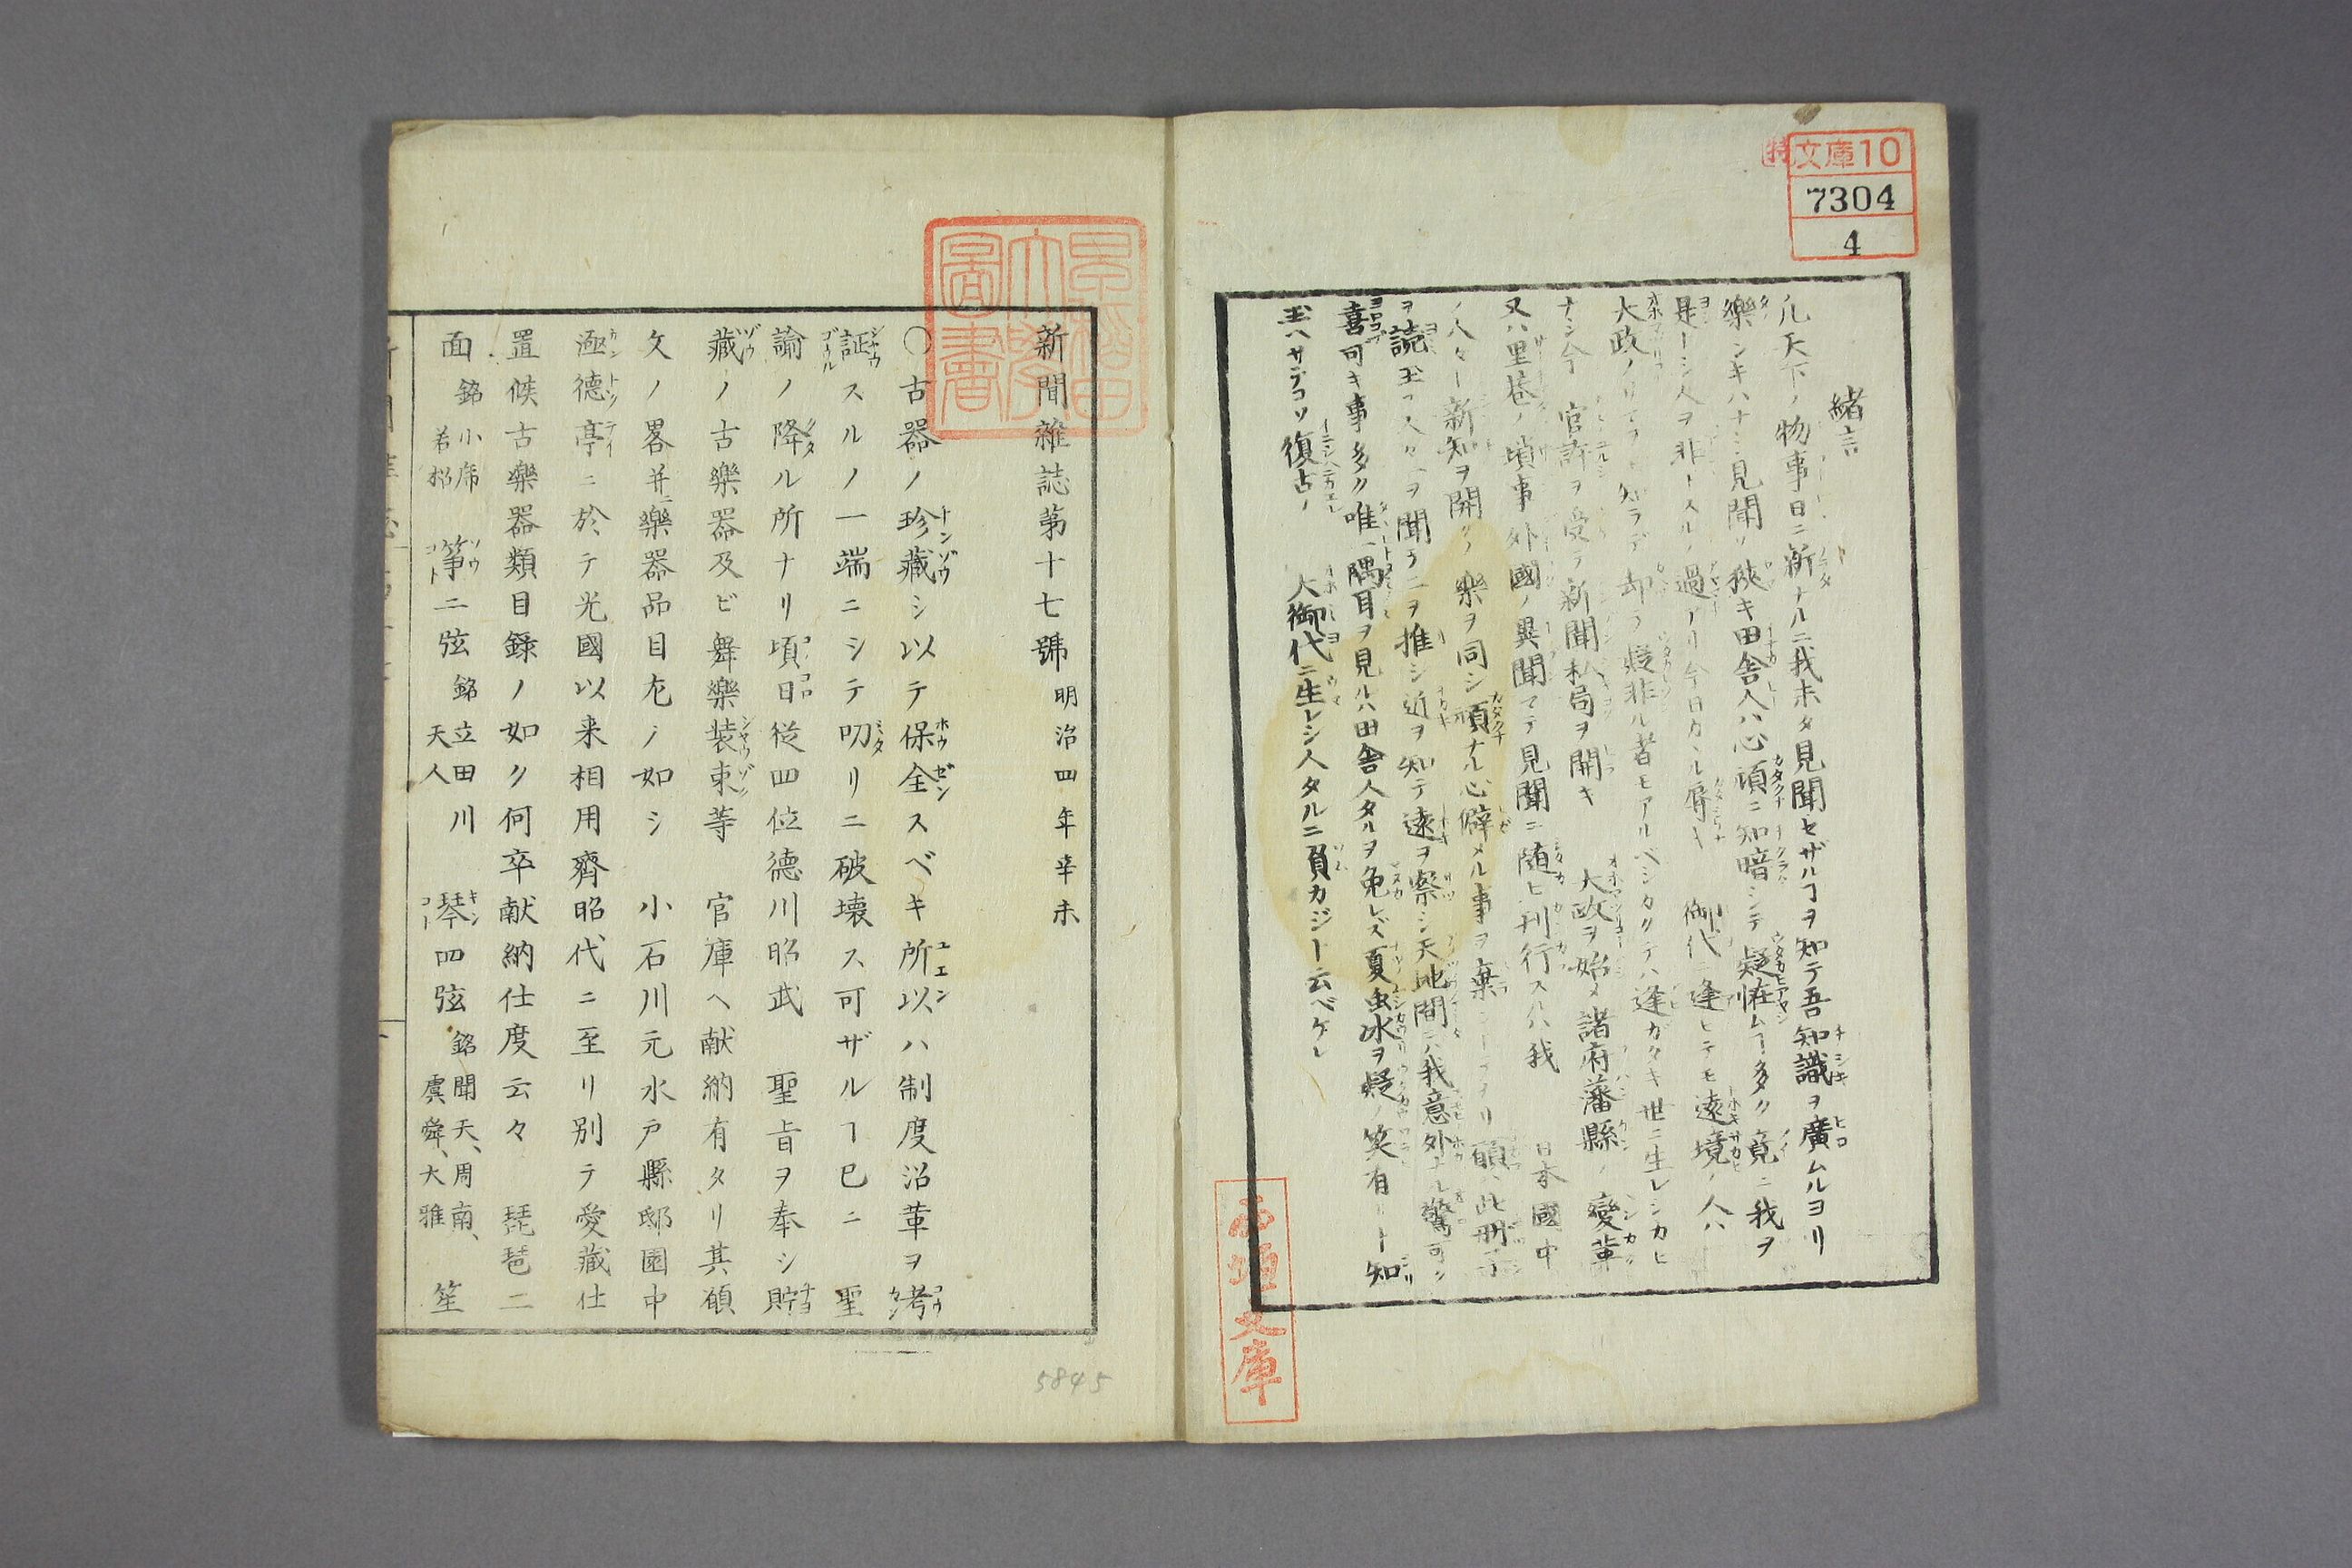 特
文庫10
7304
4
緒言
凡天下ノ物事日ニ新ナルニ我未タ見聞セザルヿヲ知テ吾知識ヲ廣ムルヨリ
樂シキハナシ見聞ノ狹キ田舎人ハ心頑ニ知暗シテ疑怪ムヿ多ク竟ニ我ヲ
是トシ人ヲ非トスルノ過アリ今日カヽル辱キ 御代ニ逢ヒテモ遠境ノ人ハ
大政ノ 知ラデ却テ疑非ル者モアルベシカクテハ逢ガタキ世ニ生レシカヒ
ナシ今 官許ヲ受テ新聞私局ヲ開キ 大政ヲ始メ諸府藩縣ノ變革
又ハ里巷ノ瑣事外國ノ異聞マテ見聞ニ随ヒ刊行スルハ我 日本國中
ノ人々ト新知ヲ開クノ樂ヲ同シ頑ナル心僻メル事ヲ棄 願ハ此冊子
ヲ読玉フ人々一ヲ聞テ二ヲ推シ近ヲ知テ遠ヲ察シ天地間ニハ我意外ナル驚可ク
喜可キ事多ク唯一隅耳ヲ見ルハ田舎人タルヲ免レズ夏虫氷ヲ疑ノ笑有ヿト知
玉ヘサデコソ復古ノ 大御代ニ生レシ人タルニ負カジト云ベケレ
文庫
新聞雜誌第十七號 明治四年辛未
〇古器ノ珍藏シ以テ保全スベキ所以ハ制度沿革ヲ考
証スルノ一端ニシテ叨リニ破壊ス可ザルヿ已ニ 聖
諭ノ降ル所ナリ頃日従四位德川昭武 聖旨ヲ奉シ貯
藏ノ古樂器及ビ舞樂装束等 官庫ヘ献納有タリ其願
文ノ畧并樂器品目左ノ如シ 小石川元水戸縣邸園中
涵德亭ニ於テ光國以来相用齊昭代ニ至リ別テ愛藏仕
置候古樂器類目録ノ如ク何卒献納仕度云々 琵琶二
面 銘小席若松 箏二弦 銘立田川天人 琴四弦 銘聞天、周南、虞舜、大雅 笙
5845